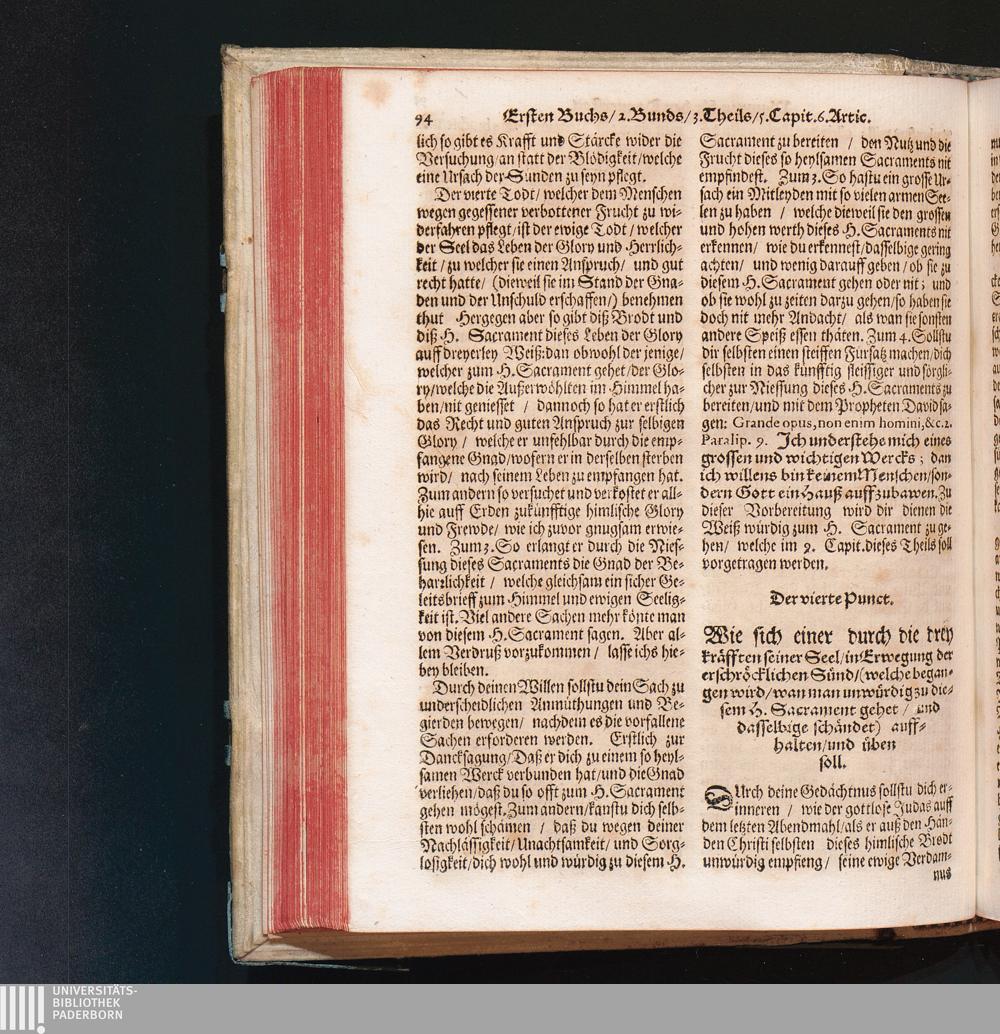 94 Ersten Buchs/2.Bunds/3.Theils/5.Capit.6.Artic.
lich so gibt es Krafft und Stärcke wider die
Versuchung/an statt der Blödigkeit/welche
eine Ursach der Sünden zu seyn pflegt.
Der vierte Todt/ welcher dem Menschen
wegen gegessener verbottener Frucht zu wi-
derfahren pflegt/ist der ewige Todt/ welcher
der Seel das Leben der Glory und Herrlich-
keit/ zu welcher sie einen Anspruch/ und gut
recht hatte/ (dieweil sie im Stand der Gna-
den und der Unschuld erschaffen/) benehmen
thut Hergegen aber so gibt diß Brodt und
diß H. Sacrament dieses Leben der Glory
auff dreyerley Weiß: dan obwohl der jenige/
welcher zum H. Sacrament gehet/der Glo-
ry/welche die Außerwöhlten im Himmel ha-
ben/nit geniesset / dannoch so hat er erstlich
das Recht und guten Anspruch zur selbigen
Glory / welche er unfehlbar durch die emp-
fangene Gnad/wofern er in derselben sterben
wird/ nach seinem Leben zu empfangen hat.
Zum andern so versuchet und verkostet er all-
hie auff Erden zukünfftige himlische Glory
und Frewde/ wie ich zuvor gnugsam erwie-
sen. Zum 3. So erlangt er durch die Nies-
sung dieses Sacraments die Gnad der Be-
harrlichkeit / welche gleichsam ein sicher Ge-
leitsbrieff zum Himmel und ewigen Seelig-
keit ist. Viel andere Sachen mehr könte man
von diesem H. Sacrament sagen. Aber al-
lem Verdruß vorzukommen / lasse ichs hie-
bey bleiben.
Durch deinen Willen sollstu dein Sach zu
underscheidlichen Anmüthungen und Be-
gierden bewegen/ nachdem es die vorfallene
Sachen erforderen werden. Erstlich zur
Dancksagung/Daß er dich zu einem so heyl-
samen Werck verbunden hat/und die Gnad
verliehen/daß du so offt zum H. Sacrament
gehen mögest. Zum andern/kanstu dich selb-
sten wohl schämen / daß du wegen deiner
Nachlässigkeit/Unachtsamkeit/ und Sorg-
losigkeit/dich wohl und würdig zu diesem H.
Sacrament zu bereiten / den Nutz und die
Frucht dieses so heylsamen Sacraments nit
empfindest. Zum 3. So hastu ein grosse Ur-
sach ein Mitleyden mit so vielen armen See-
len zu haben / welche dieweil sie den grossen
und hohen werth dieses H. Sacraments nit
erkennen/ wie du erkennest/dasselbige gering
achten/ und wenig darauff geben/ ob sie zu
diesem H. Sacrament gehen oder nit; und
ob sie wohl zu zeiten darzu gehen/so haben sie
doch nit mehr Andacht/ als wan sie sonsten
andere Speiß essen thäten. Zum 4. Sollstu
dir selbsten einen steiffen Fürsatz machen/dich
selbsten in das künfftig fleissiger und sorgli-
cher zur Niessung dieses H. Sacraments zu
bereiten/und mit dem Propheten David sa-
gen: Grande opus, non enim homini, &c. 2.
Paralip. 9. Ich understehe mich eines
grossen und wichtigen Wercks; dan
ich willens bin keinem Menschen/son-
dern Gott ein Hauß auffzubawen. Zu
dieser Vorbereitung wird dir dienen die
Weiß würdig zum H. Sacrament zu ge-
hen/ welche im 9. Capit. dieses Theils soll
vorgetragen werden.
Der vierte Punct.
Wie sich einer durch die drey
kräfften seiner Seel/in Erwegung der
erschröcklichen Sünd/(welche began-
gen wird/wan man unwürdig zu die-
sem H. Sacrament gehet / und
dasselbige schändet) auff-
halten/und üben
soll.
DUrch deine Gedächtnus sollstu dich er-
inneren / wie der gottlose Judas auff
dem letzten Abendmahl/als er auß den Hän-
den Christi selbsten dieses himlische Brodt
unwürdig empfieng/ seine ewige Verdam-
nus
UNIVERSITÄTS-
BIBLIOTHEK
PADERBORN